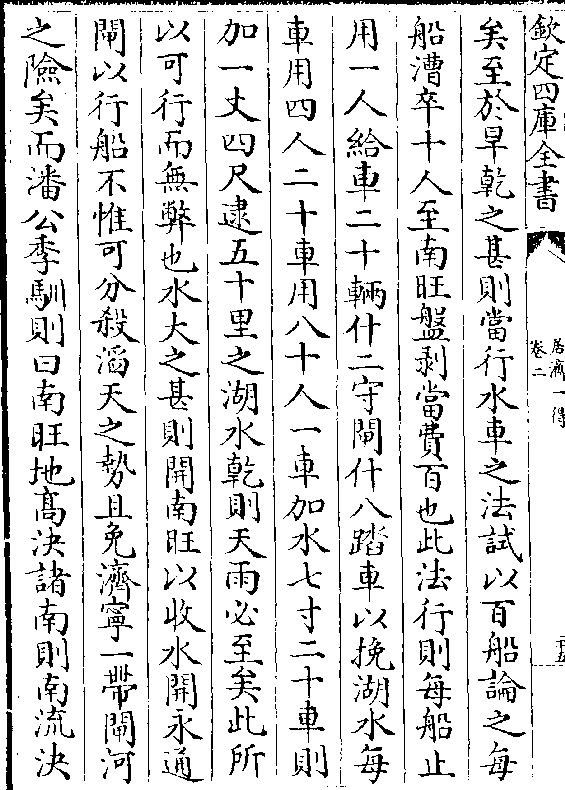 欽定四庫全書
居濟一得
卷二
二十五
矣至於旱乾之甚則當行水車之法試以百船論之每
船漕卒十人至南旺盤剥當費百也此法行則每船止
用一人給車二十輛什二守閘什八踏車以挽湖水每
車用四人二十車用八十人一車加水七寸二十車則
加一丈四尺逮五十里之湖水乾則天雨必至矣此所
以可行而無弊也水大之甚則開南旺以收水開永通
閘以行船不惟可分殺滔天之勢且免濟寧一帶閘河
之險矣而潘公季馴則曰南旺地髙決諸南則南流決